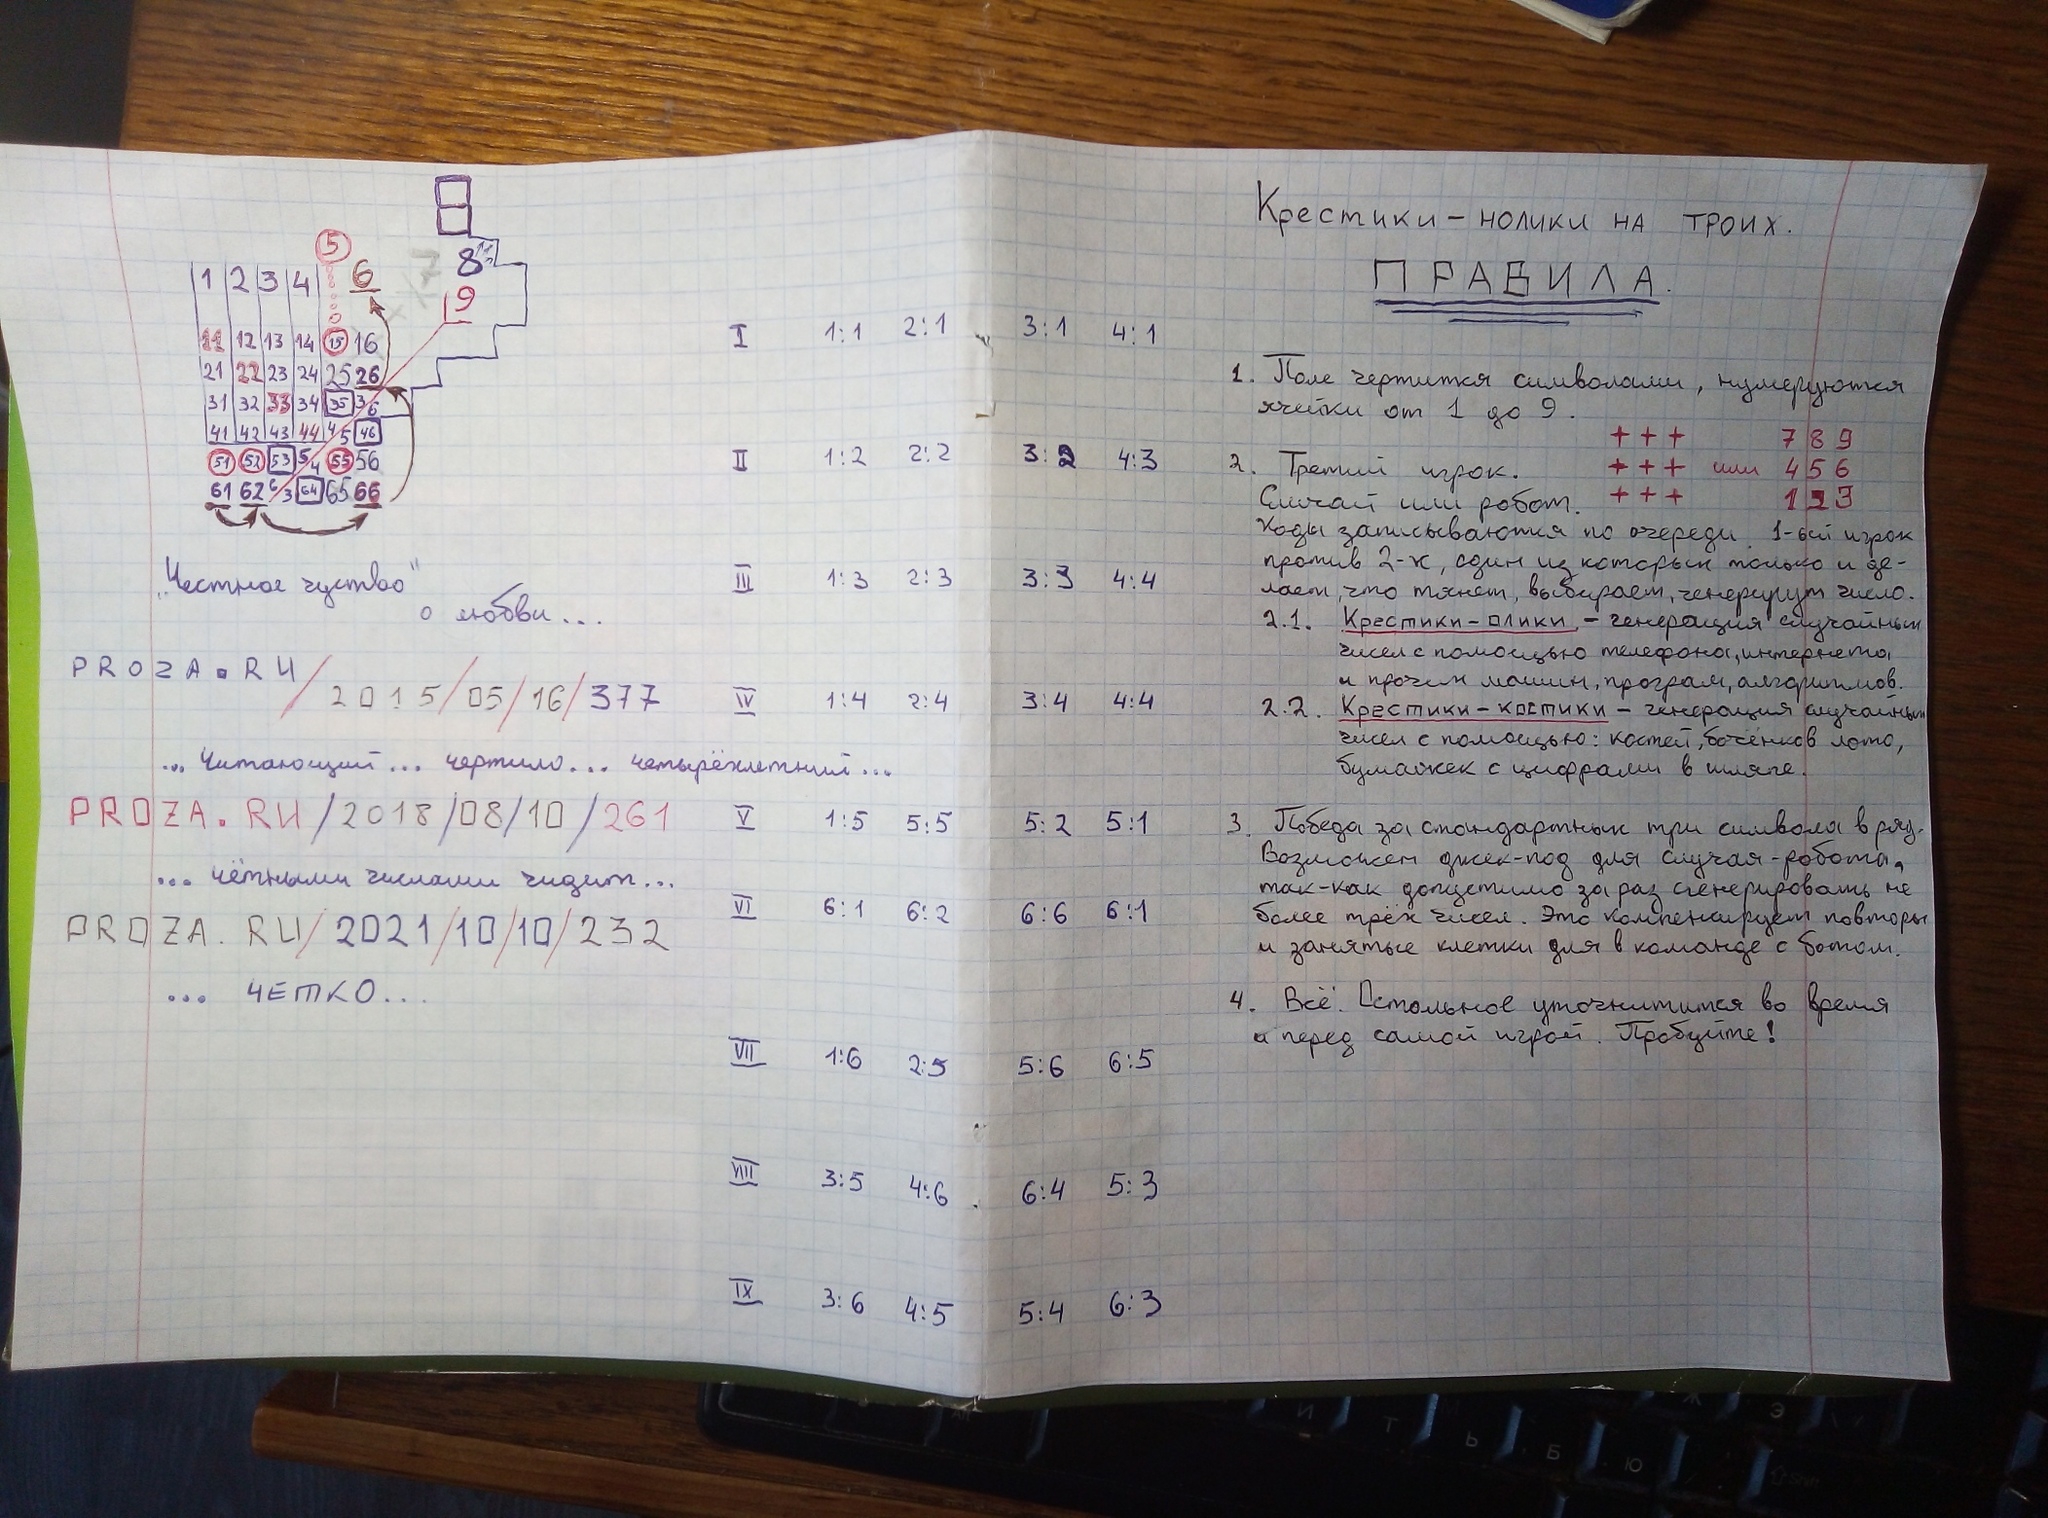 5
1 2 3 4 6 8
9
11 12 13 14 15 16
21 22 23 24 25 26
31 32 33 34 35 36
41 42 43 44 45 46
51 52 53 54 55 56
61 62 63 64 65 66
„Честное чуство"
о любви...
PROZA.RU
/2015/05/16/377
... Читающий... чертило... четырёхлетний...
PROZA.RU/2018/08/10/261
... чётными числами чидит...
PROZA.RU/2021/10/10/232
... ЧЕТКО...
I 1:1 2:1 3:1 4:1
II 1:2 2:2 3:2 4:3
III 1:3 2:3 3:3 4:4
IV 1:4 2:4 3:4 4:4
V 1:5 5:5 5:2 5:1
VI 6:1 6:2 6:6 6:1
VII 1:6 2:5 5:6 6:5
VIII 3:5 4:6 6:4 5:3
IX 3:6 4:5 5:4 6:3
Крестики-нолики на троих.
ПРАВИЛА.
1. Поле чертится символами, нумеруются
ячейки от 1 до 9.
+ + + 7 8 9
+ + + или 4 5 6
+ + + 1 2 3
2. Третий игрок.
Случай или робот.
Ходы записываются по очереди. 1-ый игрок
против 2-х, один из которых только и де-
лает, что тянет, выбирает, генерирут число.
2.1. Крестики-олики, - генерация случайных
чисел с помощью телефона, интернета
и прочих машин, програм, алгоритмов.
2.2. Крестики-костики - генерация случайных
чисел с помощью: костей, бочёнков лото,
бумажек с цифрами в шляпе.
3. Победа за стандартных три символа в ряд.
Возможен джек-под для случая-робота,
так-как допустимо за раз сгенерировать не
более трёх чисел. Это компенсирует повторы
и занятые клетки для в команде с ботом.
4. Всё. Остальное уточнитится во время
и перед самой игрой. Пробуйте!